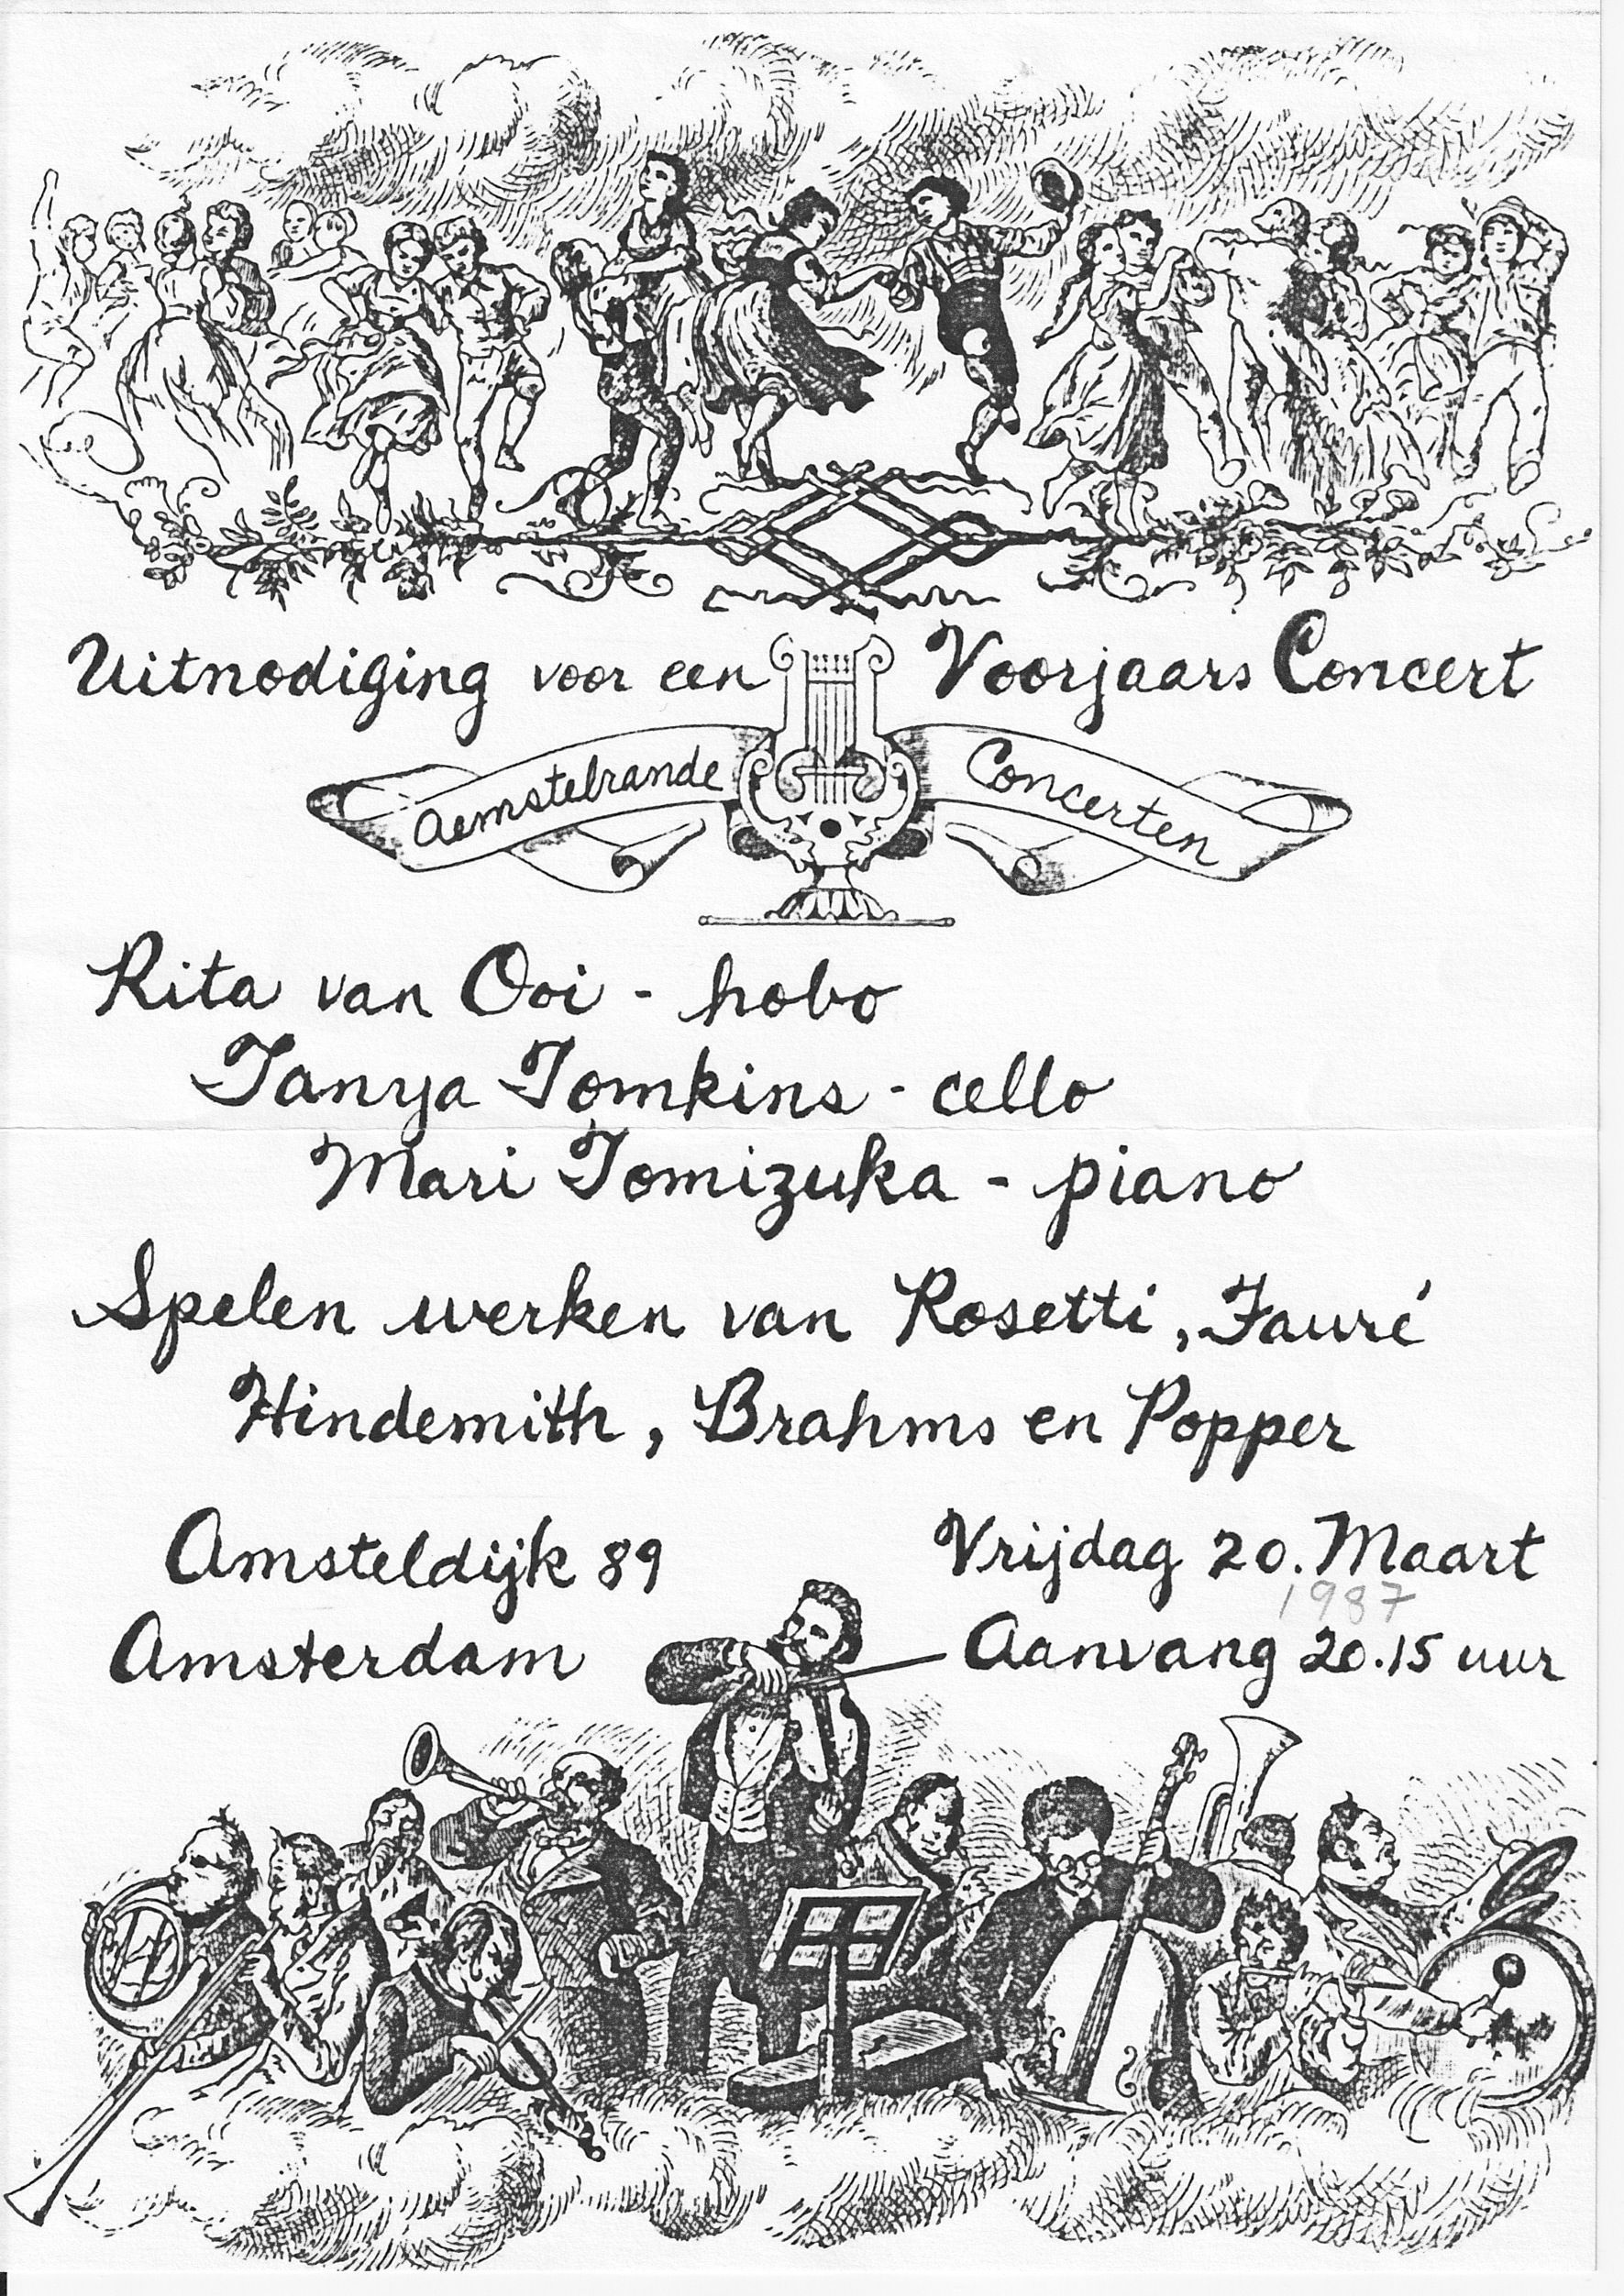 Uitnodiging voor een Voorjaars Concert
Aemstelrande Concerten
Rita van Ooi - hobo
Tanya Tomkins - cello
Mari Tomizuka - piano
Spelen werken van Rosetti, Fauré
Hindemith, Brahms en Popper
Amsteldijk 89
Amsterdam
Vrijdag 20. Maart
1987
Aanvang 20.15 uur